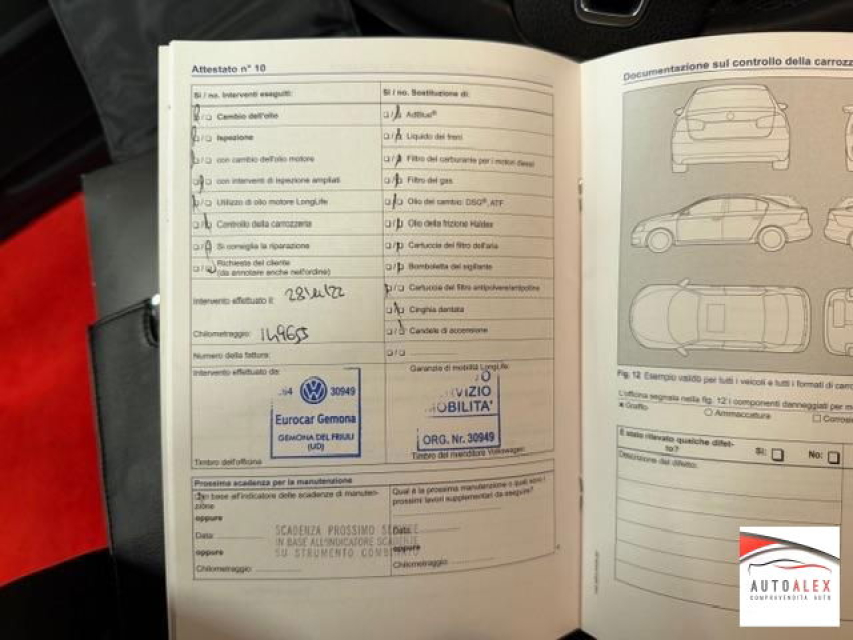 Attestato n° 10
Si / no. Interventi eseguiti:
Cambio dell'olio
Ispezione
con cambio dell'olio motore
con interventi di ispezione ampliati
Utilizzo di olio motore LongLife
Controllo della carrozzeria
Si consiglia la riparazione
Richieste del cliente
(da annotare anche nell'ordine)
Intervento effettuato il:
Chilometraggio: 149655
Numero della fattura:
Intervento effettuato da:
30949
Eurocar Gemona
GEMONA DEL FRIULI
(UD)
Timbro dell'officina
Si / no. Sostituzione di:
AdBlue®
Liquido dei freni
Filtro del carburante per i motori diesel
Filtro del gas
Olio del cambio: DSG®, ATF
Olio della frizione Haldex
Cartuccia del filtro dell'aria
Bomboletta del sigillante
Cartuccia del filtro antipolvere/antipolline
Cinghia dentata
Candele di accensione
Garanzia di mobilità LongLife
VIZIO
MOBILITA'
ORG. Nr. 30949
Timbro del rivenditore Volkswagen:
Prossima scadenza per la manutenzione
In base all'indicatore delle scadenze di manuten-
zione
oppure
Data:
oppure
Chilometraggio:
Qual è la prossima manutenzione o quali sono i
prossimi lavori supplementari da eseguire?
Data:
oppure
Chilometraggio:
SCADENZA PROSSIMO
IN BASE ALL'INDICATORE
SU STRUMENTO
Documentazione sul controllo della carrozz
Fig. 12 Esempio valido per tutti i veicoli e tutti i formati di carro
L'officina segnala nella fig. 12 i componenti danneggiati per m
Graffio
Ammaccatura
Corrosi
È stato rilevato qualche difet-
to?
Sì:
No:
Descrizione del difetto:
AUTOALEX
COMPRAVENDITA AUTO